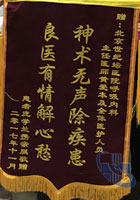 赠：北京世纪坛医院呼吸内科
主任医师黄爱本及全体医护人员
神术无声除疾患
良医有情解心愁
患者庞学兰携亲属敬赠
二零一七年十一月